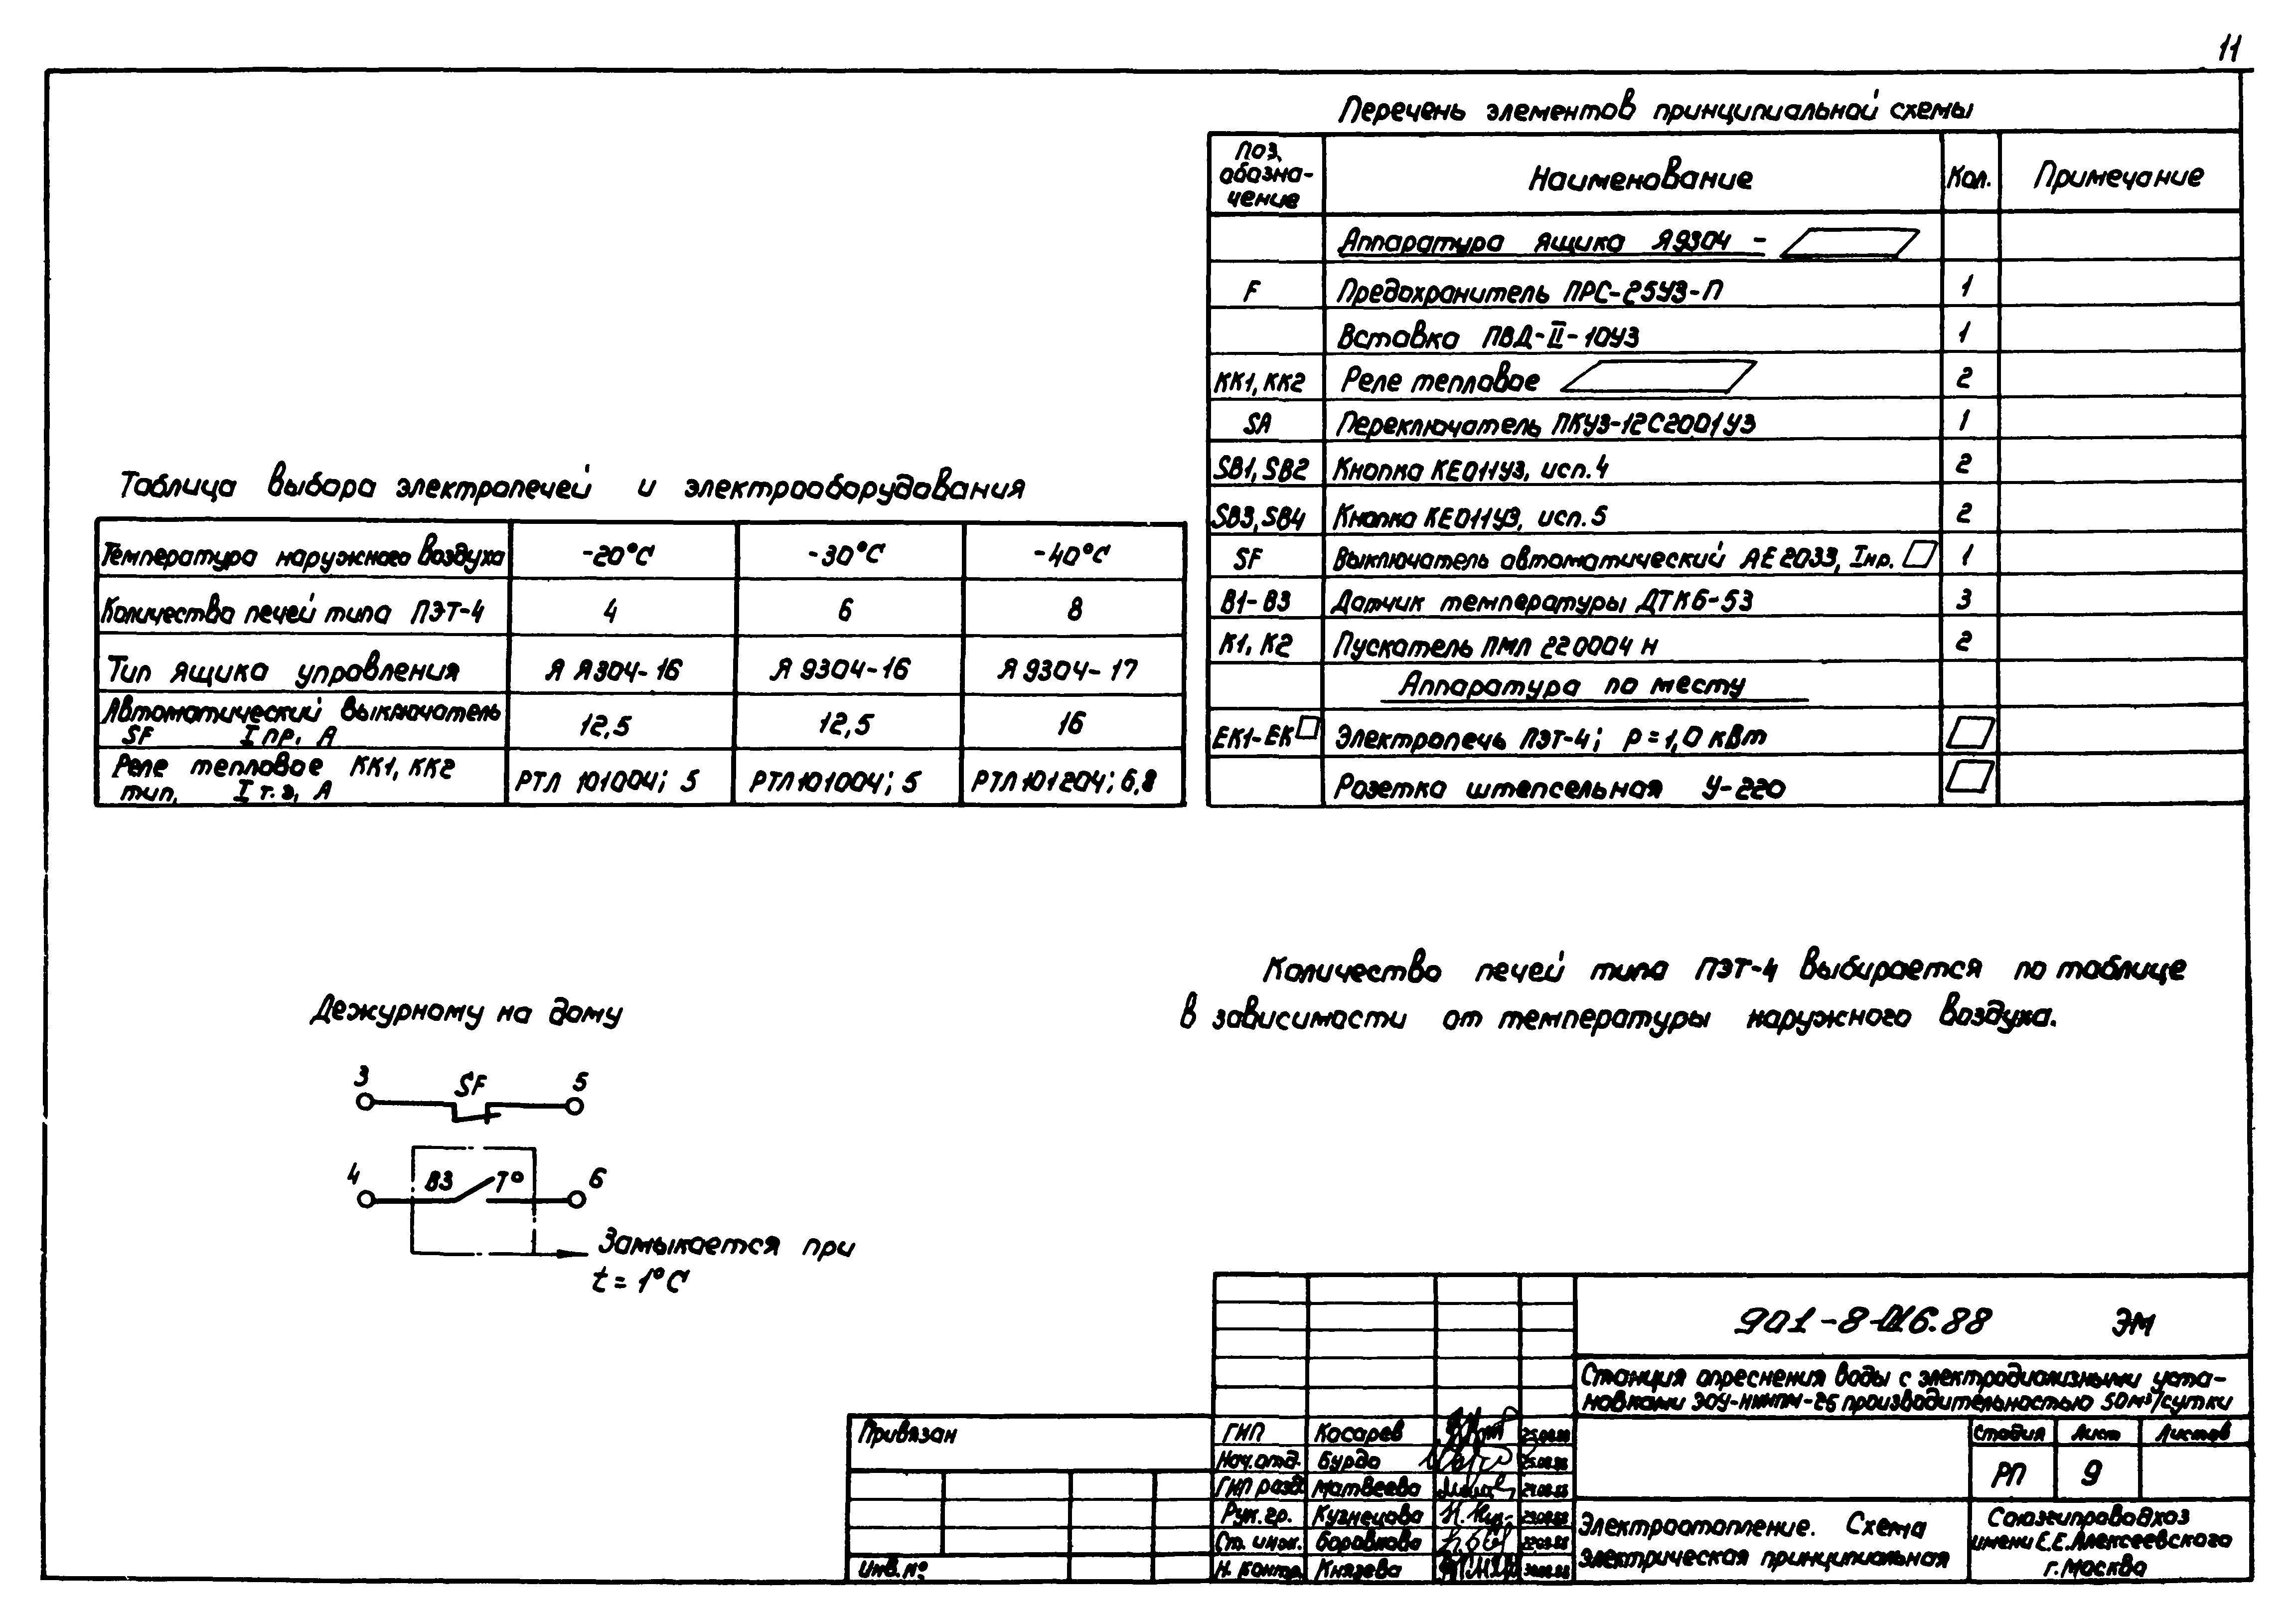 11
Перечень элементов принципиальной схемы
Поз. обозна-чение Наименование Кол. Примечание
Аппаратура ящика Я9304 -
F Предохранитель ПРС-25У3-П 1
Вставка ПВД-II-10У3 1
КК1, КК2 Реле тепловое 2
SA Переключатель ПКУ3-12С2001У3 1
SB1, SB2 Кнопка КЕ011У3, исп. 4 2
SB3, SB4 Кнопка КЕ011У3, исп. 5 2
SF Выключатель автоматический АЕ2033, Iнр. 1
В1-В3 Датчик температуры ДТКБ-53 3
К1, К2 Пускатель ПМЛ 220004 Н 2
Аппаратура по месту
ЕК1-ЕК Электропечь ПЭТ-4; Р=1,0 кВт
Розетка штепсельная У-220
Таблица выбора электропечей и электрооборудования
Температура наружного воздуха -20°С -30°С -40°С
Количество печей типа ПЭТ-4 4 6 8
Тип ящика управления Я Я304-16 Я 9304-16 Я 9304-17
Автоматический выключатель
SF I пр. А 12,5 12,5 16
Реле тепловое КК1, КК2
тип, I т.э, А РТЛ 101004; 5 РТЛ101004; 5 РТЛ101204; 6,8
Количество печей типа ПЭТ-4 выбирается по таблице
в зависимости от температуры наружного воздуха.
Дежурному на дому
3 SF 5
4 В3 Т° 6
Замыкается при
t = 1°С
901-8-016.88 ЭМ
Станция опреснения воды с электродиализными уста-
новками ЭОУ-НИИПМ-25 производительностью 50м³/сутки
Привязан
Инв. №
ГИП Косарев 25.08.88
Нач. отд. Бурдо 25.08.88
ГИП разд. Матвеева
Рук. гр. Кузнецова 23.08.88
Ст. инж. Боровкова
Н. контр. Князева
Стадия Лист Листов
РП 9
Электроотопление. Схема
электрическая принципиальная
Союзгипроводхоз
имени Е.Е.Алексеевского
г. Москва